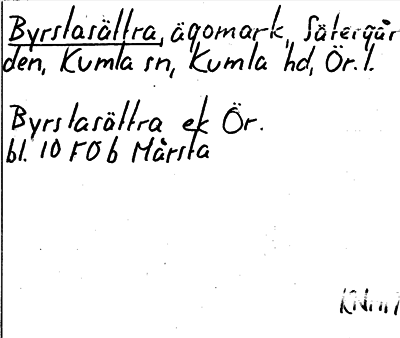 Byrstasättra, ägomark, Sätergår
den, Kumla sn, Kumla hd, Ör. l.
Byrstasättra ek Ör.
bl. 10 F0 b Mårsta